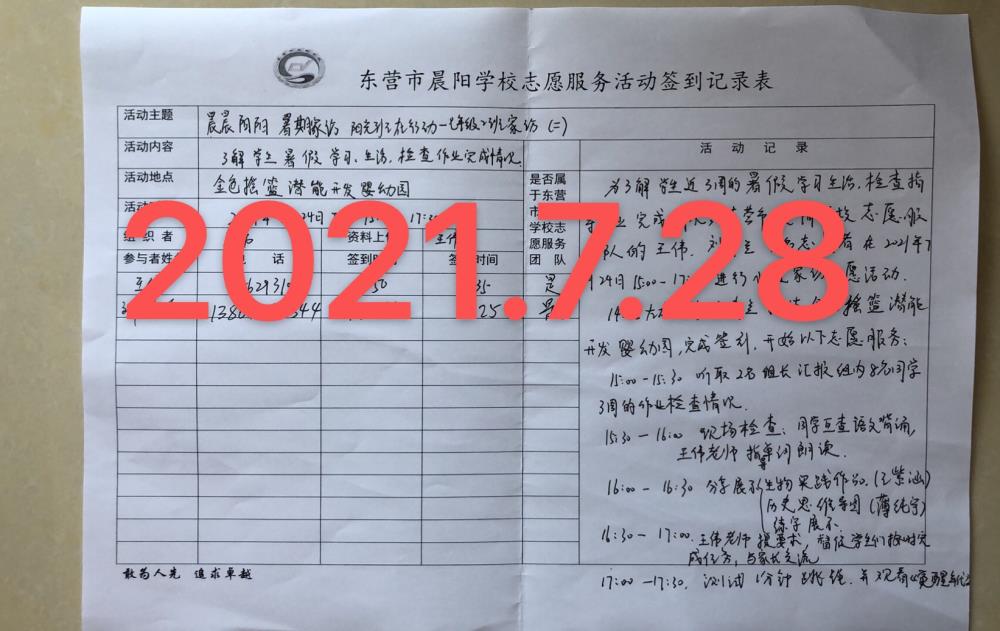 东营市晨阳学校志愿服务活动签到记录表
活动主题
晨晨阳阳 暑期家访 阳光列车在行动一七年级2班家访（二）
活动内容
了解学生暑假学习、生活，检查作业完成情况
活动地点
金色摇篮潜能开发婴幼园
活动
24日
17:30
组织者
资料上传
王伟
参与者姓名
话
签到时间
时间
是否属于东营市
学校志愿服务团队
50
35
是
1380
344
25
是
2021.7.28
活动记录
为了解学生近3周的暑假学习生活，检查指
业完成
志愿服
队的王伟、刘
在2021年7
月24日15:00-17:
进行
家访志愿活动.
摇篮潜能
开发婴幼园，完成签到，开始以下志愿服务：
15:00-15:30 听取2名组长汇报组内8名同学
3周的作业检查情况.
15:30-16:00 现场检查：同学互查语文背诵，
王伟老师指导单词朗读.
16:00-16:30 分享展示生物实践作品.(王紫涵)
历史思维导图(薄纯宇)
练字展示
16:30-17:00. 王伟老师提要求，督促学生们按时完
成任务，与家长交流
17:00-17:30. 测试1分钟跳绳，并观看《觉醒年代》
敢为人先 追求卓越